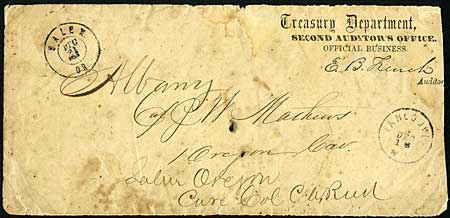 SALEM
DEC
21
Treasury Department,
SECOND AUDITOR'S OFFICE.
OFFICIAL BUSINESS.
E. B. French
Auditor
Albany
J. W. Mathews
1 Oregon Cav
Salem Oregon
Care Col C A Reed
DEC